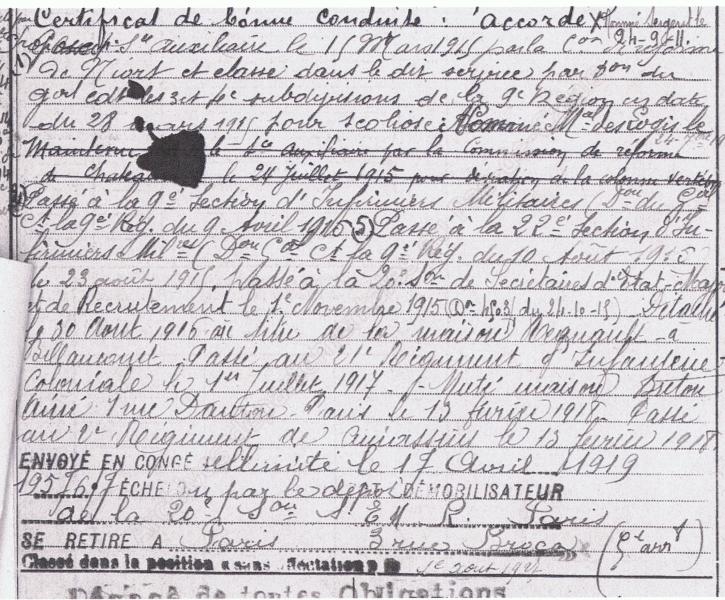 Certificat de bonne conduite : "accordé" Nommé Sergent le
24-9-11
Sce auxiliaire le 15 Mars 1915 par la Con de réforme
de Niort et classé dans le dit service par Don du
Gal Cdt les 3e et 4e subdivisions de la 9e Région en date
du 28 mars 1915 pour scoliose Nommé Mal des Logis le
Maintenu le Sce Auxiliaire par la Commission de réforme
de Chateau le 24 Juillet 1915 pour déviation de la colonne vertébrale
Passé à la 9e Section d'Infirmiers Militaires (Don du Gal
Ct la 9e Rég. du 9 Avril 1915 (3) Passé à la 22e Section d'In-
firmiers Milres (Don Gal Ct la 9e Rég. du 10 Août 19
le 23 août 1915 Passé à la 20e Son de Secrétaires d'Etat-Major
et de Recrutement le 1e Novembre 1915 (Dn du 24-10-15) Détaché
le 30 Août 1915 au titre de la maison Regnault à
Billancourt. Passé au 21e Régiment d'Infanterie
Coloniale le 1er Juillet 1917 - Muté maison Breton
rue Danton Paris le 13 février 1918 Passé
au 2e Régiment de Cuirassiers le 13 février 1918
ENVOYÉ EN CONGÉ illimité le 17 Avril 1919
ÉCHELON par le dépôt DÉMOBILISATEUR
de la 20e Son S. E. M. R. Paris
SE RETIRE A Paris 3 rue Broca (Ee arrt)
Classé dans la position "sans affectation" le 1e août
Dégagé de toutes Obligations